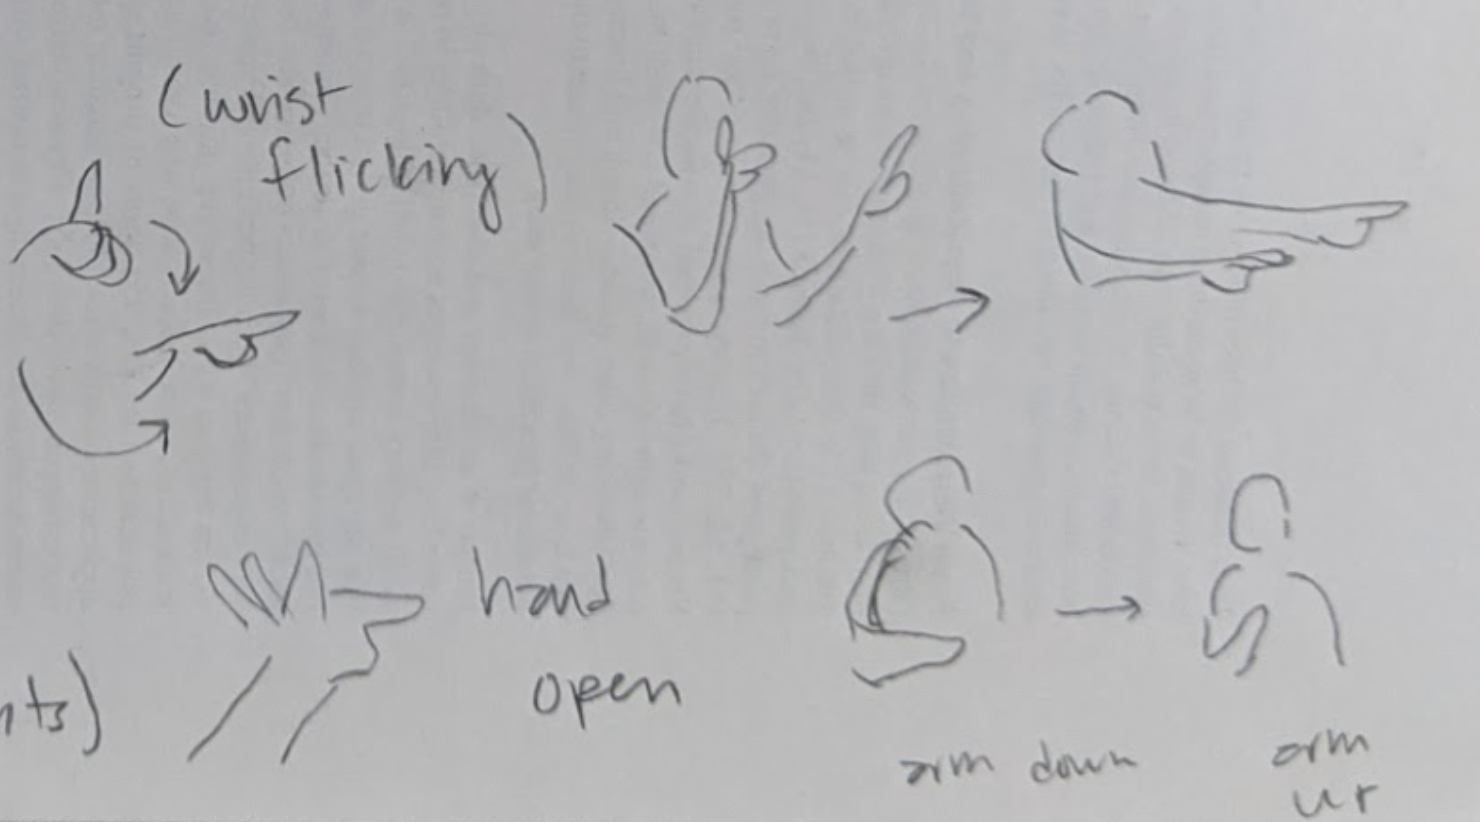 (wrist
flicking)
hand
open
nts)
arm down
arm
up